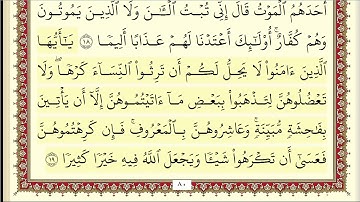 أَحَدَهُمُ ٱلْمَوْتُ قَالَ إِنِّى تُبْتُ ٱلْـَٰٔنَ وَلَا ٱلَّذِينَ يَمُوتُونَ
وَهُمْ كُفَّارٌ ۚ أُو۟لَـٰٓئِكَ أَعْتَدْنَا لَهُمْ عَذَابًا أَلِيمًا ١٨ يَـٰٓأَيُّهَا
ٱلَّذِينَ ءَامَنُوا۟ لَا يَحِلُّ لَكُمْ أَن تَرِثُوا۟ ٱلنِّسَآءَ كَرْهًا ۖ وَلَا
تَعْضُلُوهُنَّ لِتَذْهَبُوا۟ بِبَعْضِ مَآ ءَاتَيْتُمُوهُنَّ إِلَّآ أَن يَأْتِينَ
بِفَـٰحِشَةٍ مُّبَيِّنَةٍ ۚ وَعَاشِرُوهُنَّ بِٱلْمَعْرُوفِ ۚ فَإِن كَرِهْتُمُوهُنَّ
فَعَسَىٰٓ أَن تَكْرَهُوا۟ شَيْـًٔا وَيَجْعَلَ ٱللَّهُ فِيهِ خَيْرًا كَثِيرًا ١٩
٨٠